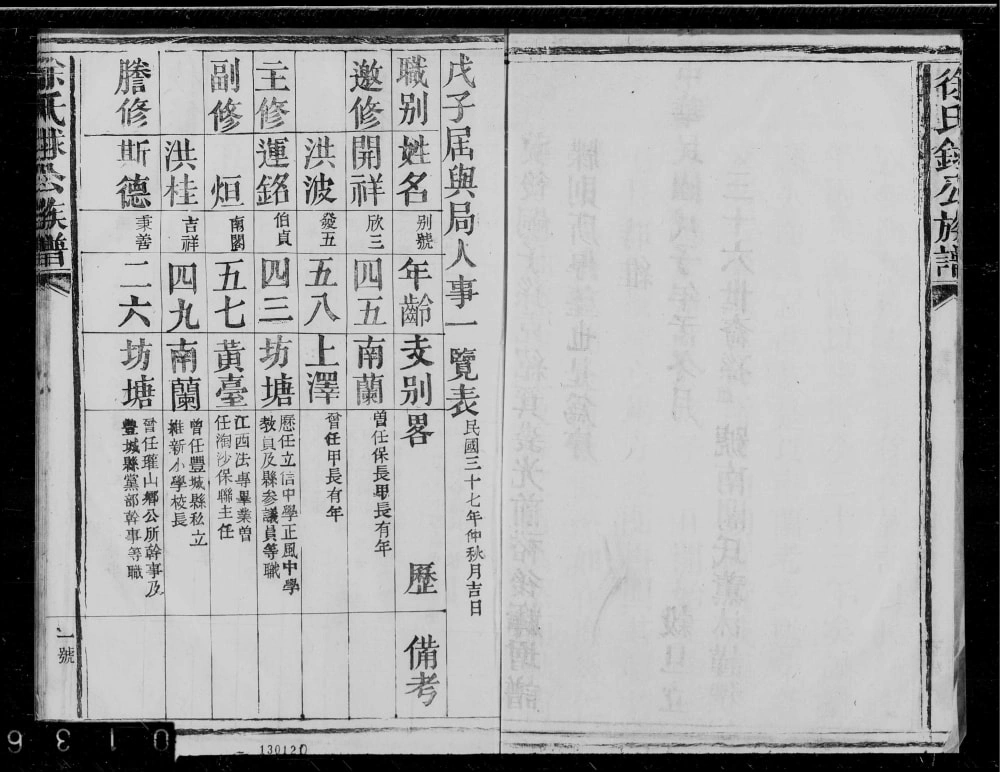 徐氏錄公族譜
戊子屆與局人事一覽表 民國三十七年仲秋月吉日
職别 姓名 别號 年齡 支别 畧歷 備考
邀修 開祥 欣三 四五 南蘭 曾任保長甲長有年
洪波 發五 五八 上澤 曾任甲長有年
主修 運銘 伯貞 四三 坊塘 歷任立信中學正風中學
教員及縣參議員等職
副修 烜 南閣 五七 黃臺 江西法專畢業曾
任淘沙保聯主任
洪桂 吉祥 四九 南蘭 曾任豐城縣私立
維新小學校長
謄修 斯德 秉善 二六 坊塘 曾任瓘山鄉公所幹事及
豐城縣黨部幹事等職
徐氏錄公族譜
一號
0136
130120